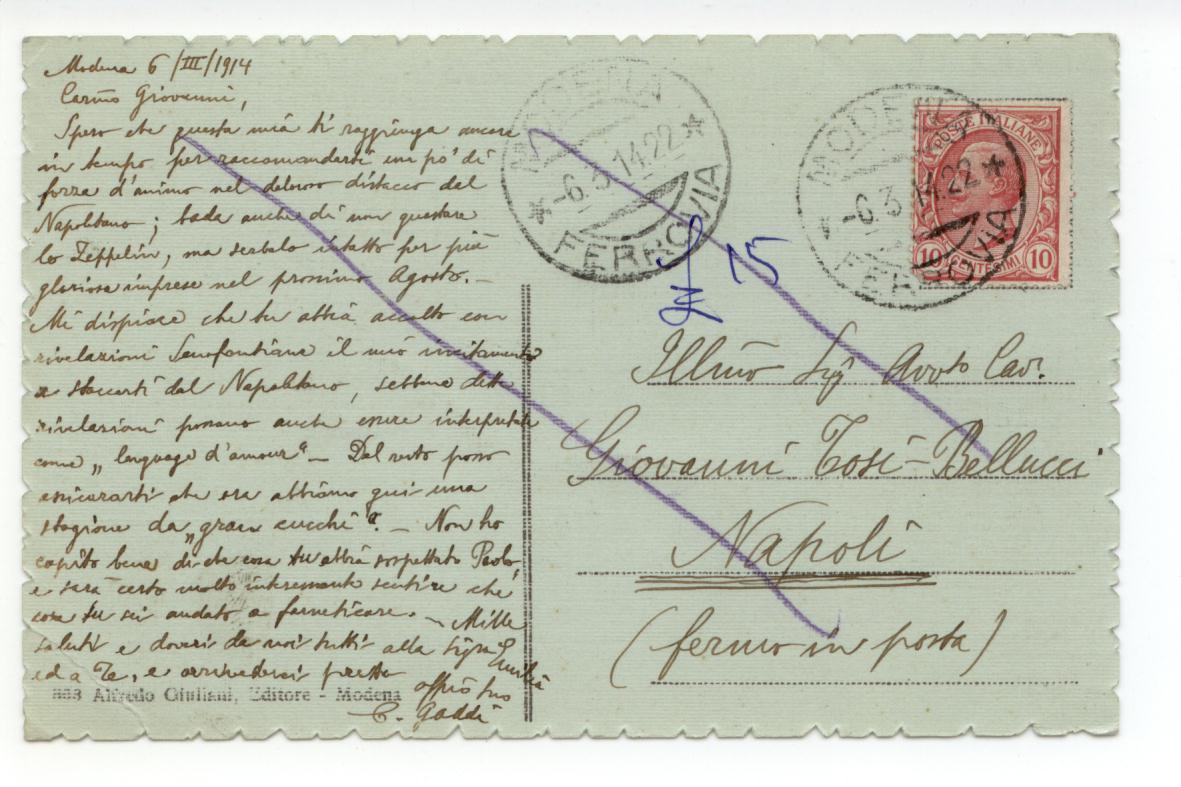 Modena 6/III/1914
Carmo Giovanni,
Spero che questa mia ti raggiunga ancora
in tempo per raccomandarti un po' di
forza d'animo nel doloroso distacco dal
Napolitano; bada anche di non guastare
lo Zeppelin, ma serbalo intatto per più
gloriose imprese nel prossimo Agosto. —
Mi dispiace che tu abbia accolto con
rivelazioni Senofontiane il mio incitamento
a staccarti dal Napolitano, sebbene dette
rivelazioni possano anche essere interpretate
come „language d'amour" — Del resto posso
assicurarti che ora abbiamo qui una
stagione da „gran cucchi". — Non ho
capito bene di che cosa tu abbia sospettato Paolo,
e sarà certo molto interessante sentire che
cosa tu sei andato a farneticare. — Mille
saluti e doveri da noi tutti alla Sigra Emilia
ed a Te, e arrivederci presto
affmo tuo
C. Gaddi
Alfredo Giuliani, Editore - Modena
MODENA
-6.3.14.22
FERROVIA
MODENA
-6.3.14.22
FERROVIA
POSTE ITALIANE
10 CENTESIMI 10
15
Illmo Sigr Avvto Cav.
Giovanni Tosi-Bellucci
Napoli
(fermo in posta)